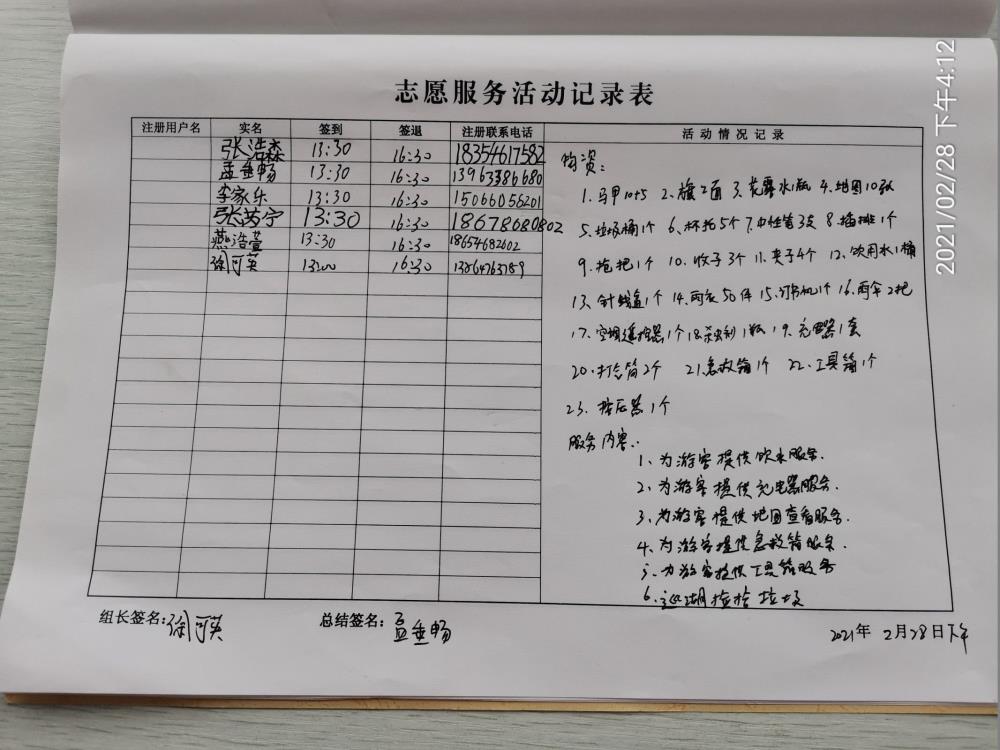 志愿服务活动记录表
注册用户名 实名 签到 签退 注册联系电话 活动情况记录
张浩森 13:30 16:30 18354617582
孟垂畅 13:30 16:30 13963386680
李家乐 13:30 16:30 15066056201
张芮宁 13:30 16:30 18678680802
燕浩萱 13:30 16:30 18654682602
徐可英 13:00 16:30
物资:
1.马甲10+5 2.旗2面 3.花露水1瓶 4.地图10张
5.垃圾桶1个 6.杯托5个 7.中性笔3支 8.插排1个
9.拖把1个 10.收子3个 11.夹子4个 12.饮用水1桶
13.针线盒1个 14.雨衣50件 15.订书机1个 16.雨伞2把
17.空调遥控器1个 18.杀虫剂1瓶 19.充电器1套
20.打气筒2个 21.急救箱1个 22.工具箱1个
23.按压器1个
服务内容:
1、为游客提供饮水服务.
2、为游客提供充电器服务.
3、为游客提供地图查看服务.
4、为游客提供急救箱服务.
5.为游客提供工具箱服务
6.巡湖捡拾垃圾
组长签名:徐可英 总结签名:孟垂畅 2021年2月28日下午
2021/02/28 下午4:12